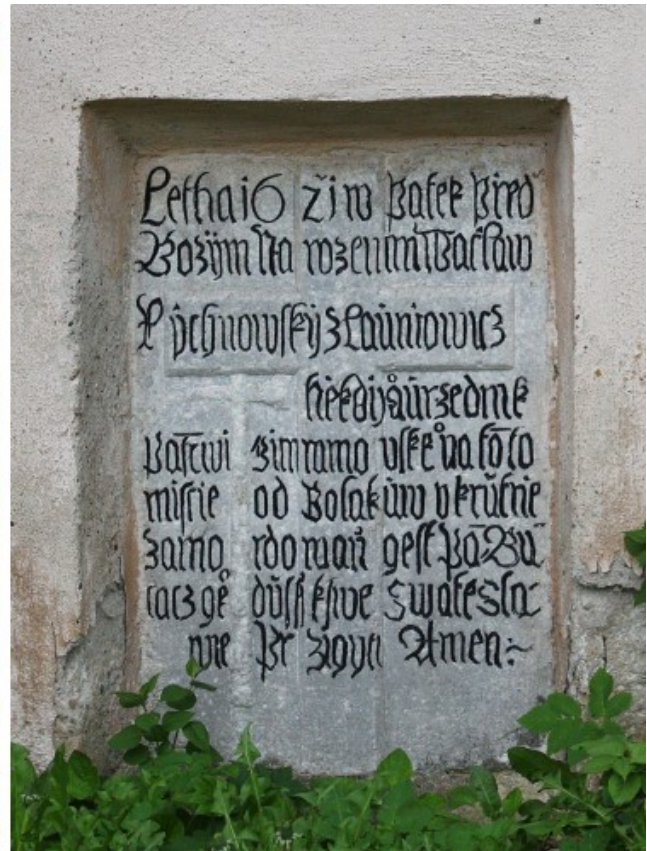 Letha i6 Ziw Patek Pred
Bozijm Na rozenim Waclaw
Pychnowskij z Launiowicz
Nekdij aurzednik
Panstwi Zimramo uske na toto
miste od Bosakuw vkrutne
zamo rdowan gest Pa Bu
racz ge dussi k sve swate sla
wie Pr zigyti Amen